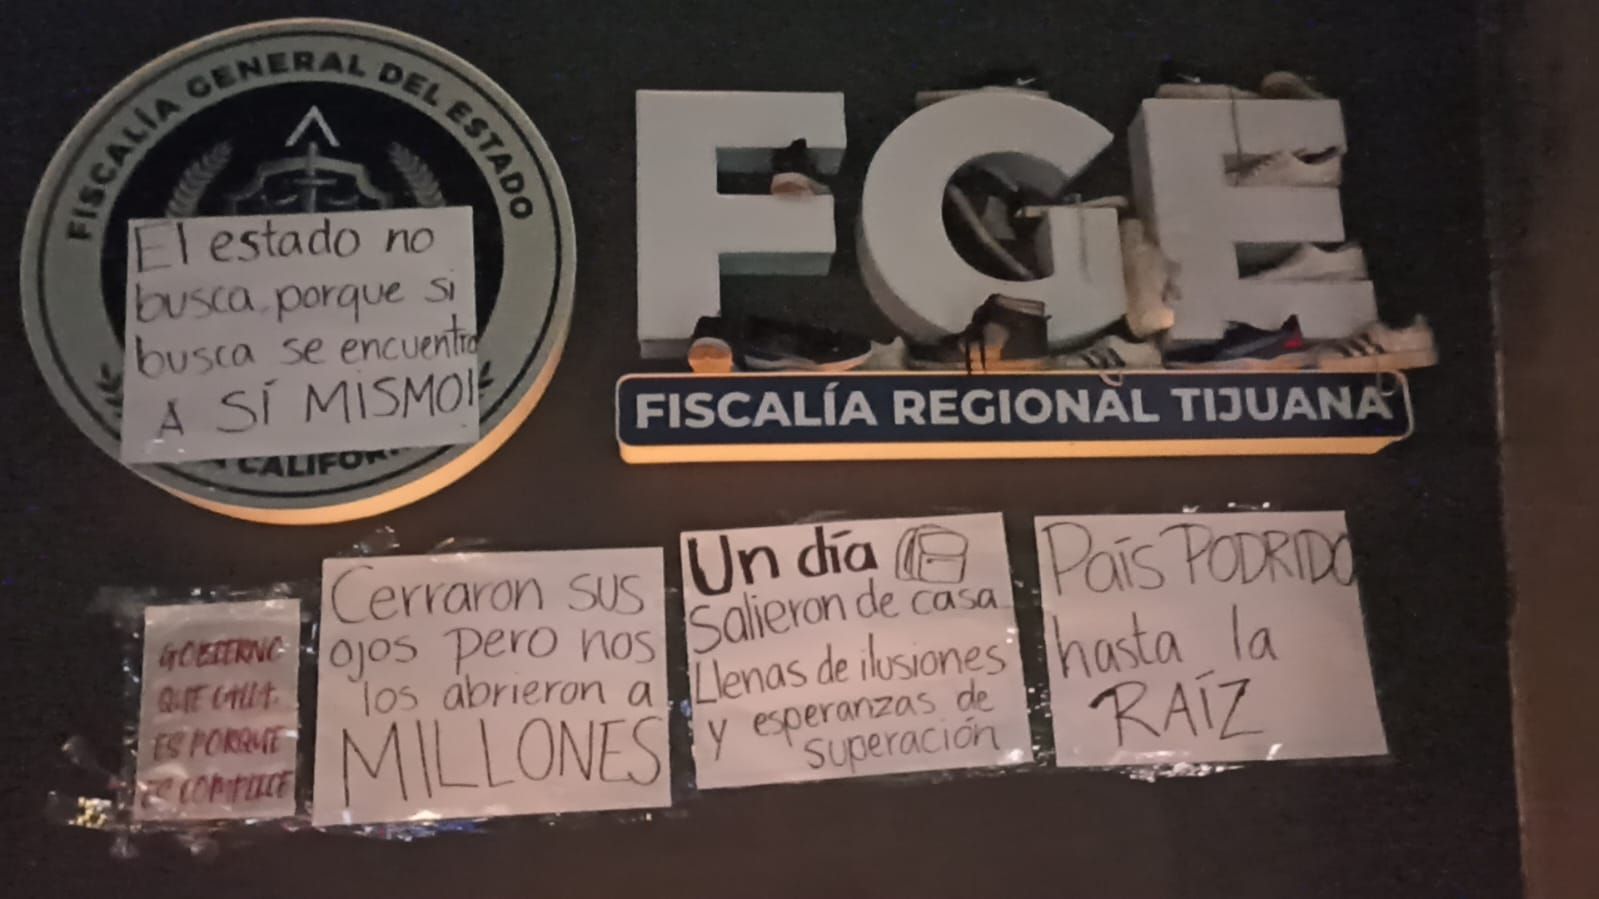 FISCALÍA GENERAL DEL ESTADO
El estado no
busca, porque si
busca se encuentra
A SÍ MISMO!
CALIFOR
FGE
FISCALÍA REGIONAL TIJUANA
GOBIERNO
QUE CALLA,
ES PORQUE
ES COMPLICE
Cerraron sus
ojos pero nos
los abrieron a
MILLONES
Un día
Salieron de casa
Llenas de ilusiones
y esperanzas de
superación
País PODRIDO
hasta la
RAÍZ